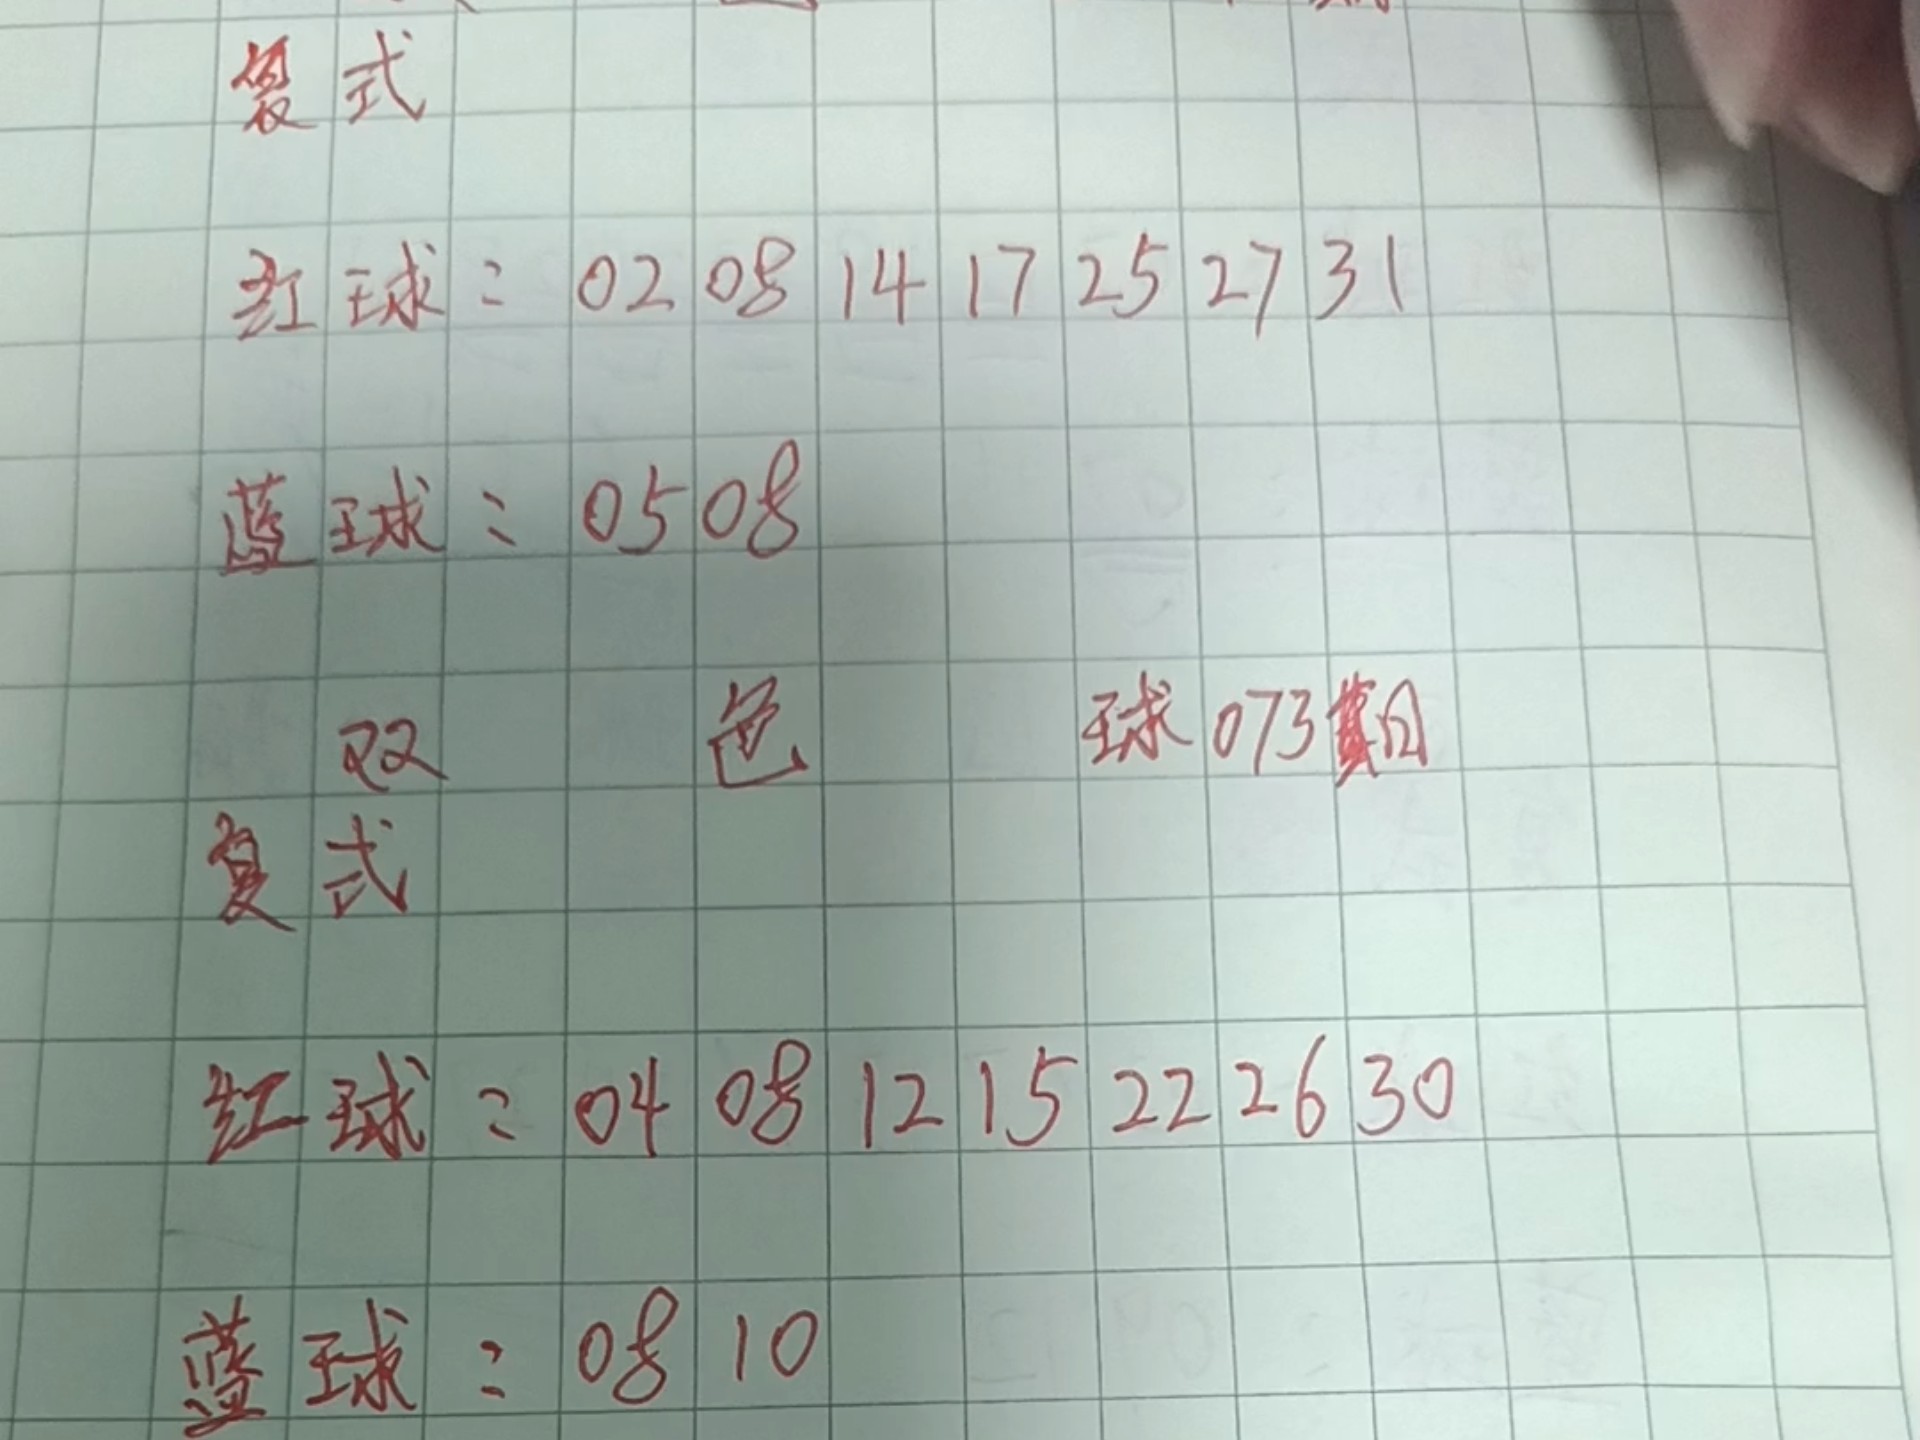 复式
红球：02 08 14 17 25 27 31
蓝球：05 08
双色球073期
复式
红球：04 08 12 15 22 26 30
蓝球：08 10